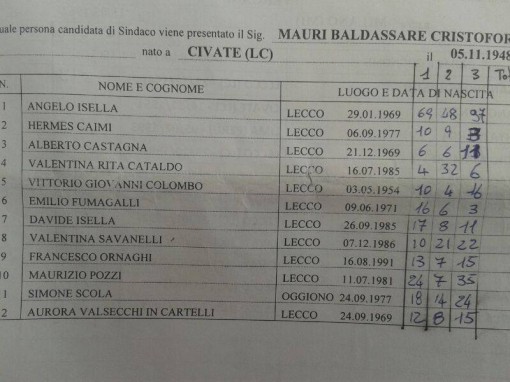 uale persona candidata di Sindaco viene presentato il Sig. MAURI BALDASSARE CRISTOFOR
nato a CIVATE (LC) il 05.11.1948
1 2 3 Tot
N. NOME E COGNOME LUOGO E DATA DI NASCITA
1 ANGELO ISELLA LECCO 29.01.1969 69 48 37
2 HERMES CAIMI LECCO 06.09.1977 10 9 3
3 ALBERTO CASTAGNA LECCO 21.12.1969 6 6 11
4 VALENTINA RITA CATALDO LECCO 16.07.1985 4 32 6
5 VITTORIO GIOVANNI COLOMBO LECCO 03.05.1954 10 4 16
6 EMILIO FUMAGALLI LECCO 09.06.1971 16 6 3
7 DAVIDE ISELLA LECCO 26.09.1985 17 8 11
8 VALENTINA SAVANELLI LECCO 07.12.1986 10 21 22
9 FRANCESCO ORNAGHI LECCO 16.08.1991 13 7 15
10 MAURIZIO POZZI LECCO 11.07.1981 24 7 35
1 SIMONE SCOLA OGGIONO 24.09.1977 18 14 24
2 AURORA VALSECCHI IN CARTELLI LECCO 24.09.1969 12 8 15